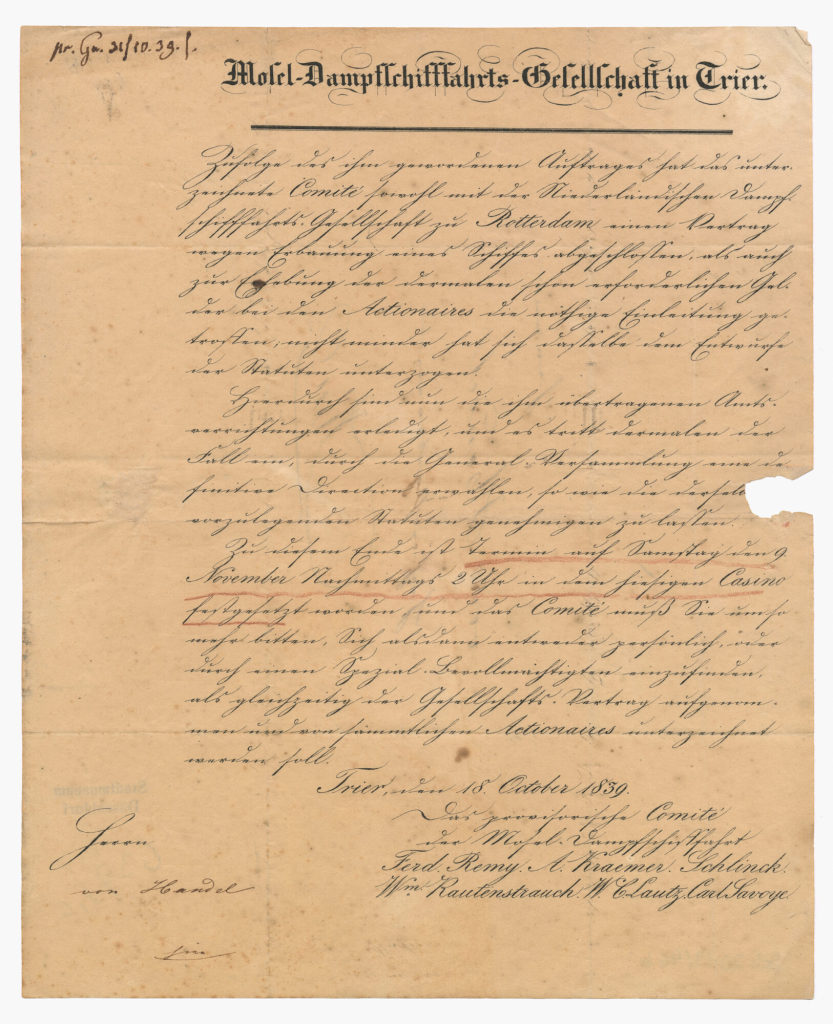 pr. Gn. 31/10.39.
Mosel-Dampfschifffahrts-Gesellschaft in Trier.
Zufolge des ihm gewordenen Auftrages hat das unter-
zeichnete Comité sowohl mit der Niederländischen Dampf-
schifffahrts-Gesellschaft zu Rotterdam einen Vertrag
wegen Erbauung eines Schiffes abgeschlossen, als auch
zur Erhebung der dermalen schon erforderlichen Gel-
der bei den Actionaires die nöthige Einleitung ge-
troffen; nicht minder hat sich dasselbe dem Entwurfe
der Statuten unterzogen.
Hierdurch sind nun die ihm übertragenen Amts-
verrichtungen erledigt, und es tritt dermalen der
Fall ein, durch die General-Versammlung eine de-
finitive Direction erwählen, so wie die derselben
vorzulegenden Statuten genehmigen zu lassen.
Zu diesem Ende ist Termin auf Samstag den 9
November Nachmittags 2 Uhr in dem hiesigen Casino
festgesetzt worden und das Comité muß Sie um so
mehr bitten, Sich alsdann entweder persönlich, oder
durch einen Spezial-Bevollmächtigten einzufinden,
als gleichzeitig der Gesellschafts-Vertrag aufgenom-
men und von sämmtlichen Actionaires unterzeichnet
werden soll.
Trier, den 18. October 1839.
Das provisorische Comité
der Mosel-Dampfschifffahrt
Ferd. Remy. A. Kraemer. Schlinck.
Wm. Rautenstrauch. W. C. Lautz. Carl Savoye.
Herrn
von Handel
hier